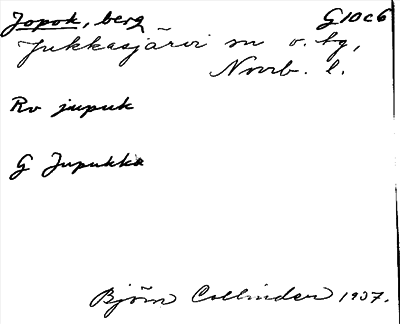 Jopok, berg G10c6
Jukkasjärvi sn o. tg,
Norrb. l.
Rv jupuk
G Jupukka
Björn Collinder 1937.